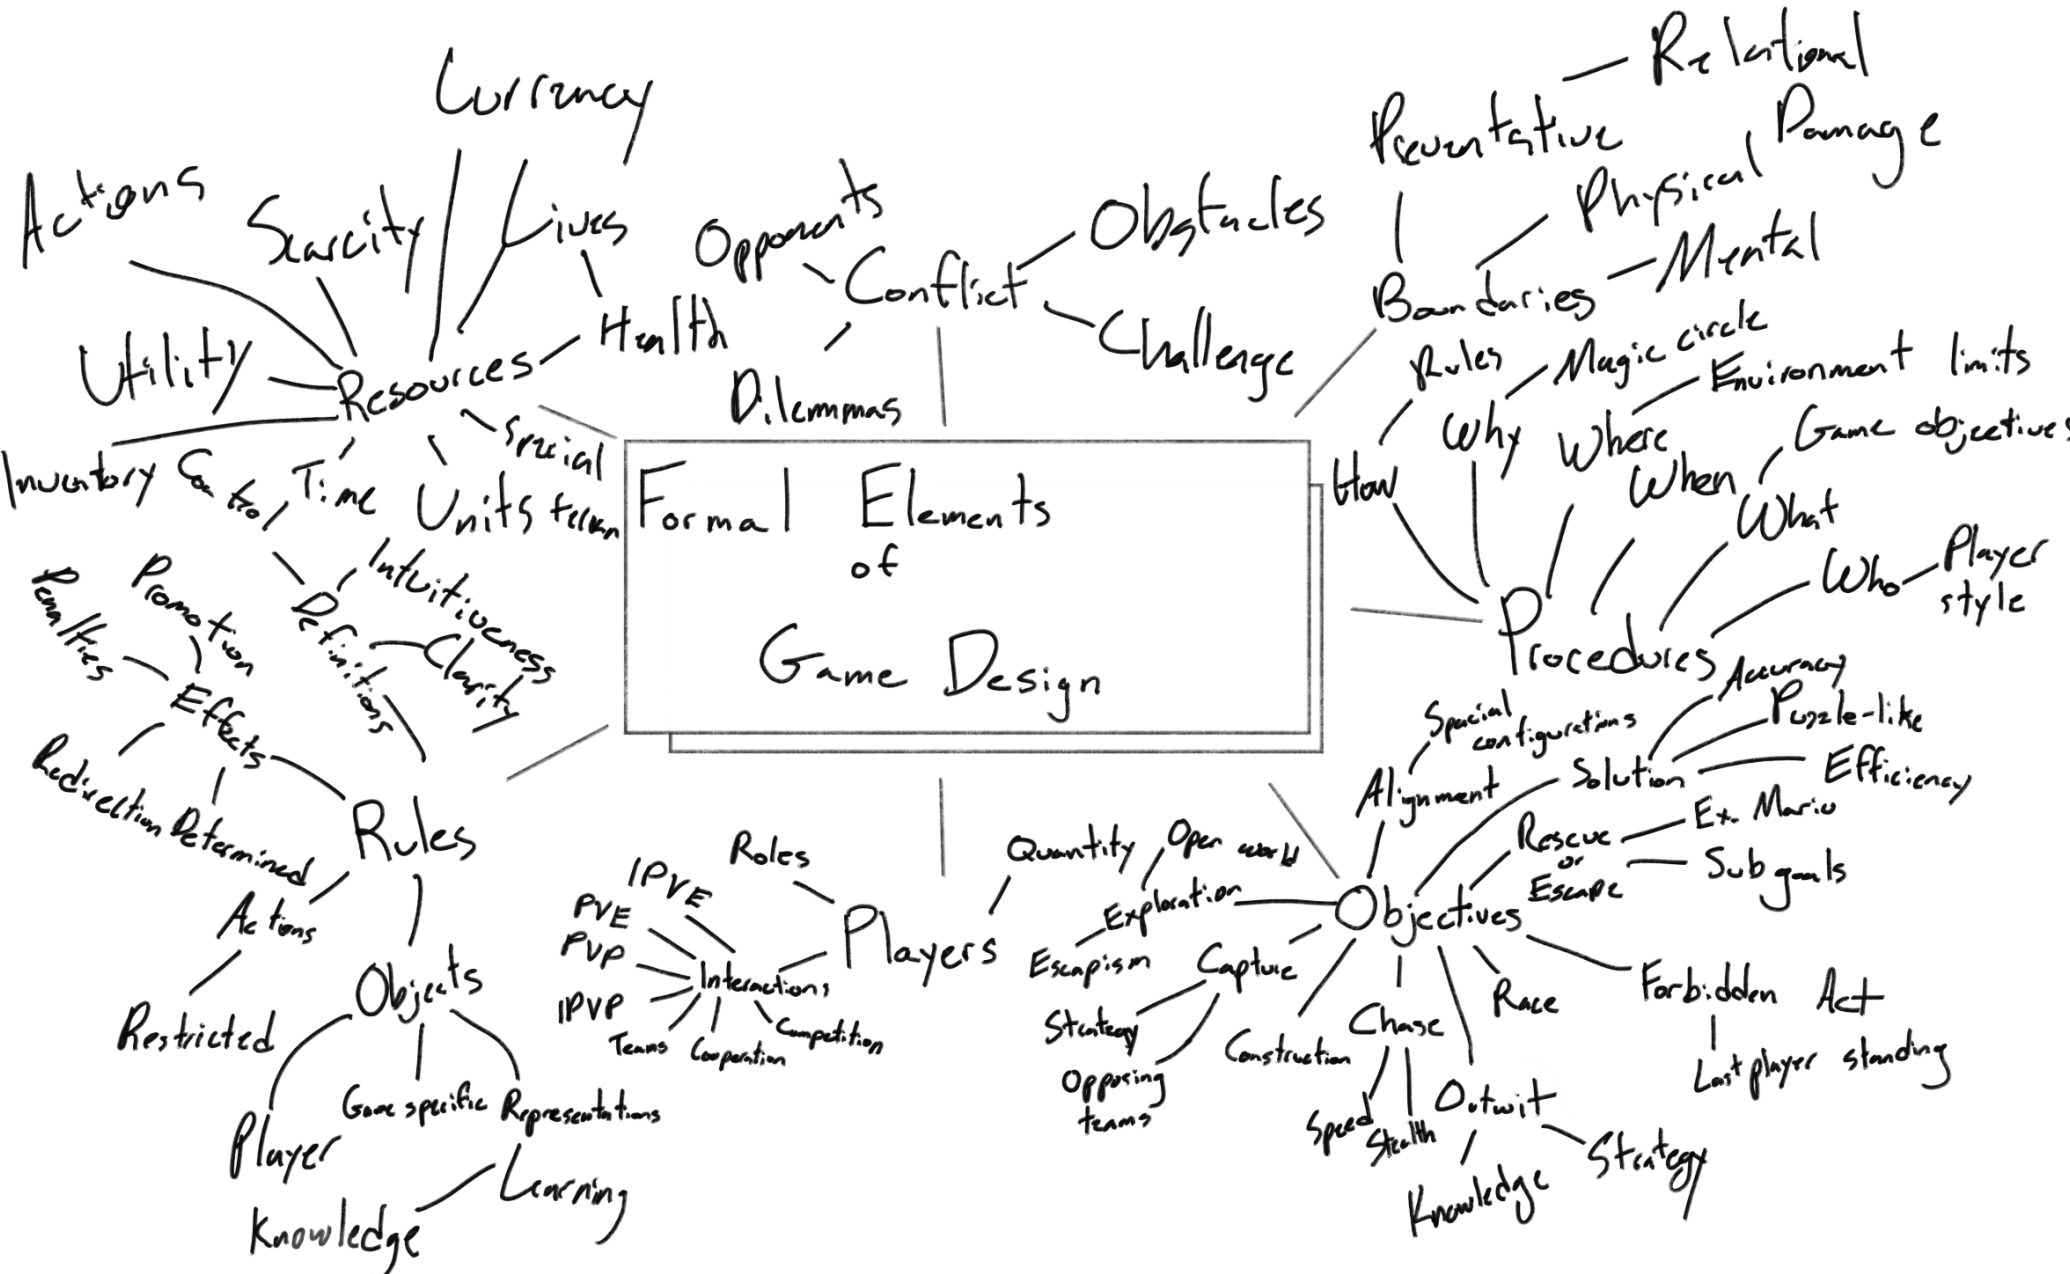 Formal Elements
of
Game Design
Resources
Actions
Scarcity
Currency
Lives
Health
Utility
Inventory
Time
Units
Special
terrain
Control
Conflict
Opponents
Obstacles
Challenge
Dilemmas
Boundaries
Preventative
Relational
Physical
Damage
Mental
Procedures
How
Rules
Why
Magic circle
Where
Environment limits
When
What
Game objectives
Who
Player
style
Objectives
Alignment
Spacial
configurations
Solution
Accuracy
Puzzle-like
Efficiency
Rescue
or
Escape
Ex. Mario
Sub goals
Forbidden Act
Last player standing
Race
Outwit
Knowledge
Strategy
Chase
Speed
Stealth
Construction
Capture
Strategy
Opposing
teams
Exploration
Open world
Escapism
Players
Quantity
Roles
Interactions
IPVE
PVE
PVP
IPVP
Teams
Cooperation
Competition
Rules
Definitions
Intuitiveness
Clarity
Effects
Promotion
Penalties
Redirection
Determined
Actions
Restricted
Objects
Player
Game specific
Representations
Learning
Knowledge